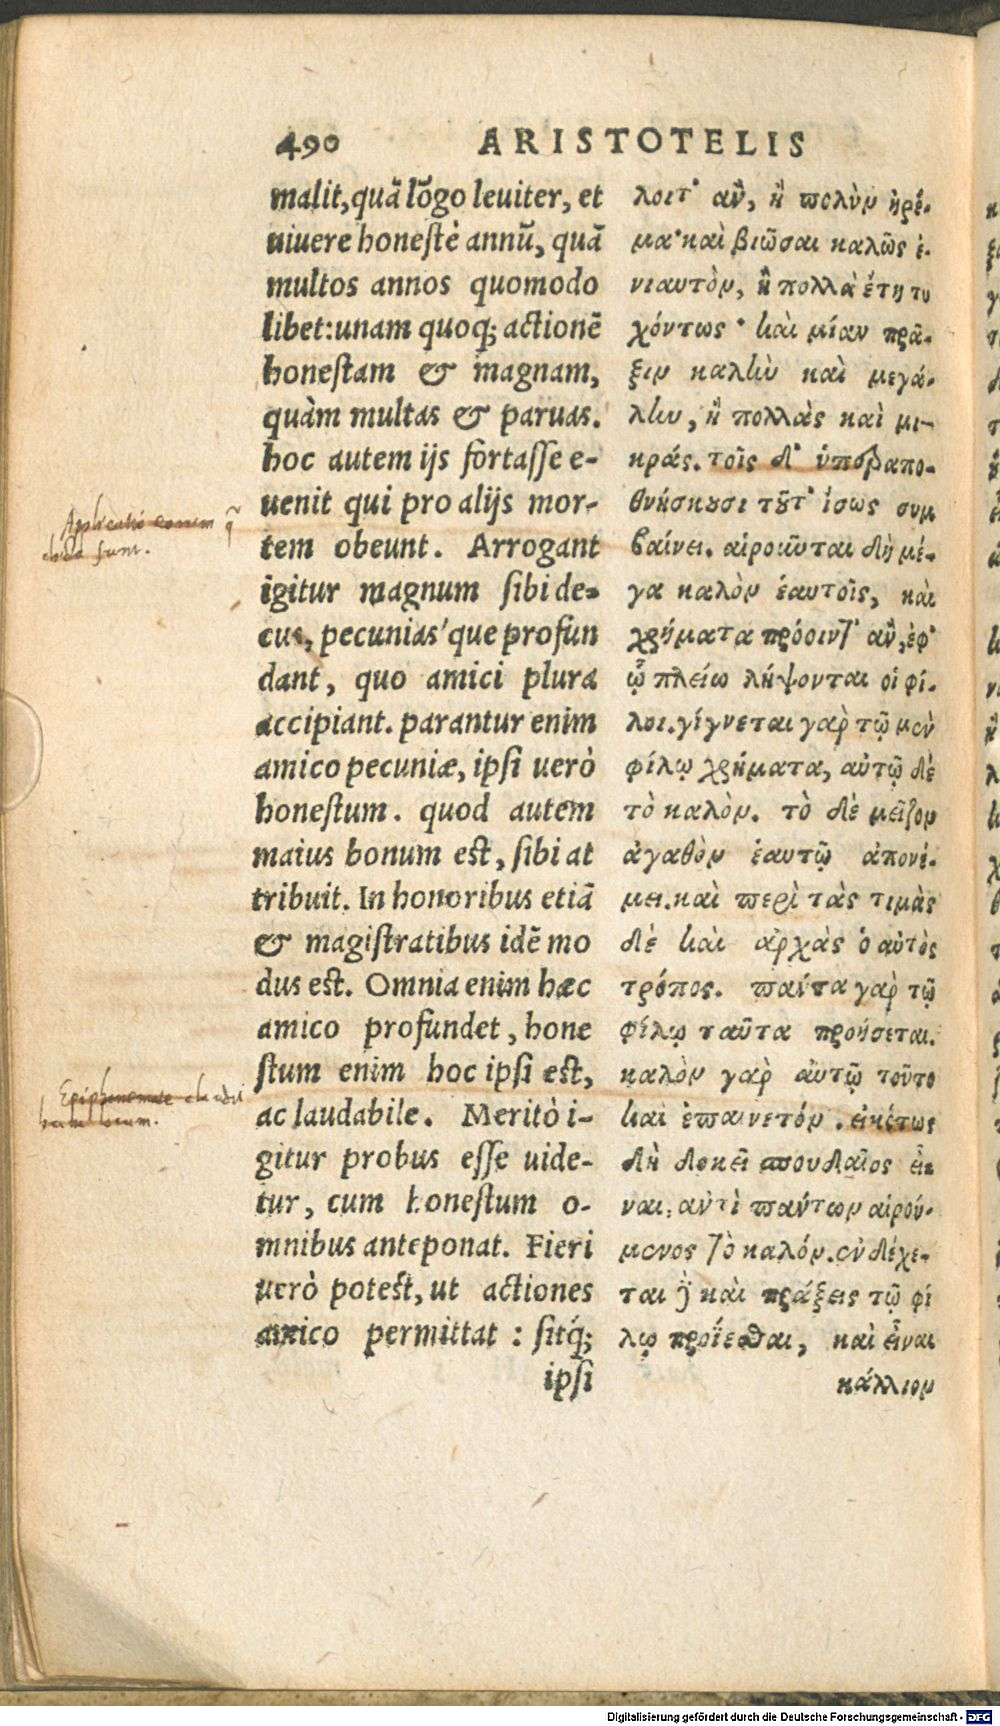 490 ARISTOTELIS
malit, quã lõgo leuiter, et
uiuere honestè annũ, quã
multos annos quomodo
libet: unam quoq; actionẽ
honestam & magnam,
quàm multas & paruas.
hoc autem ijs fortasse e-
uenit qui pro alijs mor-
tem obeunt. Arrogant
igitur magnum sibi de-
cus, pecunias'que profun
dant, quo amici plura
accipiant. parantur enim
amico pecuniæ, ipsi uerò
honestum. quod autem
maius bonum est, sibi at
tribuit. In honoribus etiã
& magistratibus idẽ mo
dus est. Omnia enim hæc
amico profundet, hone
stum enim hoc ipsi est,
ac laudabile. Meritò i-
gitur probus esse uide-
tur, cum honestum o-
mnibus anteponat. Fieri
uerò potest, ut actiones
amico permittat: sitq́;
ipsi
λοιτ' ἂν, ἢ πολὺν ἠρέ-
μα· καὶ βιῶσαι καλῶς ἐ-
νιαυτὸν, ἢ πολλὰ ἔτη τυ
χόντως· καὶ μίαν πρᾶ-
ξιν καλὴν καὶ μεγά-
λην, ἢ πολλὰς καὶ μι-
κράς. τοῖς δ' ὑπεραπο-
θνήσκουσι τοῦτ' ἴσως συμ
βαίνει. αἱροῦνται δὴ μέ-
γα καλὸν ἑαυτοῖς, καὶ
χρήματα πρόοιντ' ἂν, ἐφ'
ᾧ πλείω λήψονται οἱ φί-
λοι. γίγνεται γὰρ τῷ μὲν
φίλῳ χρήματα, αὑτῷ δὲ
τὸ καλὸν. τὸ δὲ μεῖζον
ἀγαθὸν ἑαυτῷ ἀπονέ-
μει. καὶ περὶ τὰς τιμὰς
δὲ καὶ ἀρχὰς ὁ αὐτὸς
τρόπος. πάντα γὰρ τῷ
φίλῳ ταῦτα προήσεται.
καλὸν γὰρ αὑτῷ τοῦτο
καὶ ἐπαινετόν. εἰκότως
δὴ δοκεῖ σπουδαῖος εἶ-
ναι, ἀντὶ πάντων αἱρού-
μενος τὸ καλόν. ἐνδέχε-
ται δὲ καὶ πράξεις τῷ φί
λῳ προΐεσθαι, καὶ εἶναι
κάλλιον
Aplicatio eorum q̃
dicta sunt.
Digitalisierung gefördert durch die Deutsche Forschungsgemeinschaft - DFG